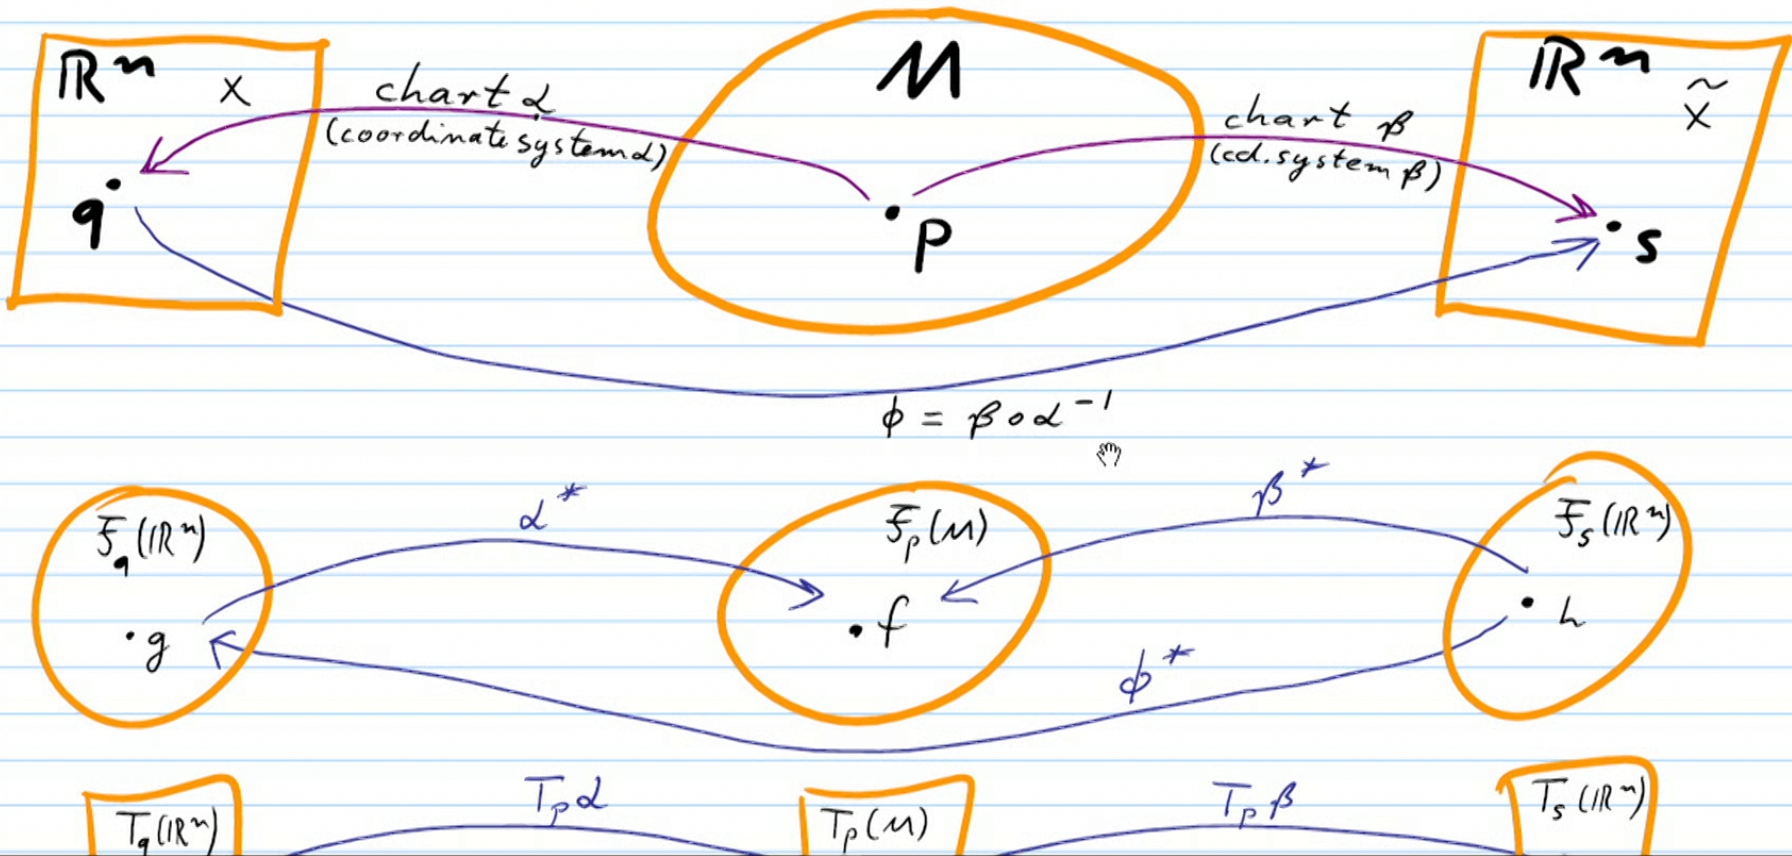 ℝⁿ x
chart α
(coordinate system α)
q
M
p
chart β
(cd. system β)
ℝⁿ x̃
s
ϕ = β∘α⁻¹
𝓕_q(ℝⁿ)
g
α*
𝓕_p(M)
f
β*
𝓕_s(ℝⁿ)
h
ϕ*
T_q(ℝⁿ)
T_pα
T_p(M)
T_pβ
T_s(ℝⁿ)